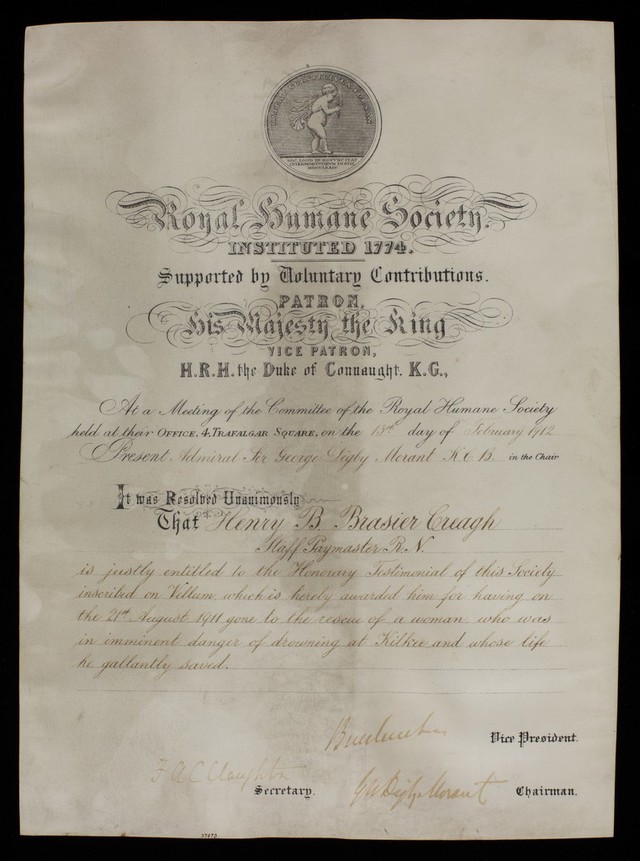 LATEAT SCINTILLVLA FORSAN
HOC PRETIVM CIVE SERVATO TVLIT
Royal Humane Society.
INSTITUTED 1774.
Supported by Voluntary Contributions.
PATRON,
His Majesty the King
VICE PATRON,
H.R.H. the Duke of Connaught. K.G.,
At a Meeting of the Committee of the Royal Humane Society
held at their OFFICE, 4, TRAFALGAR SQUARE, on the 13th day of February 1912
Present Admiral Sir George Digby Morant K.C.B. in the Chair
It was Resolved Unanimously
That Henry B Brasier Creagh
Staff Paymaster R.N.
is justly entitled to the Honorary Testimonial of this Society
inscribed on Vellum which is hereby awarded him for having on
the 21st August 1911 gone to the rescue of a woman who was
in imminent danger of drowning at Kilkee and whose life
he gallantly saved.
Vice President.
F A C Claughton
Secretary.
G Digby Morant
Chairman.